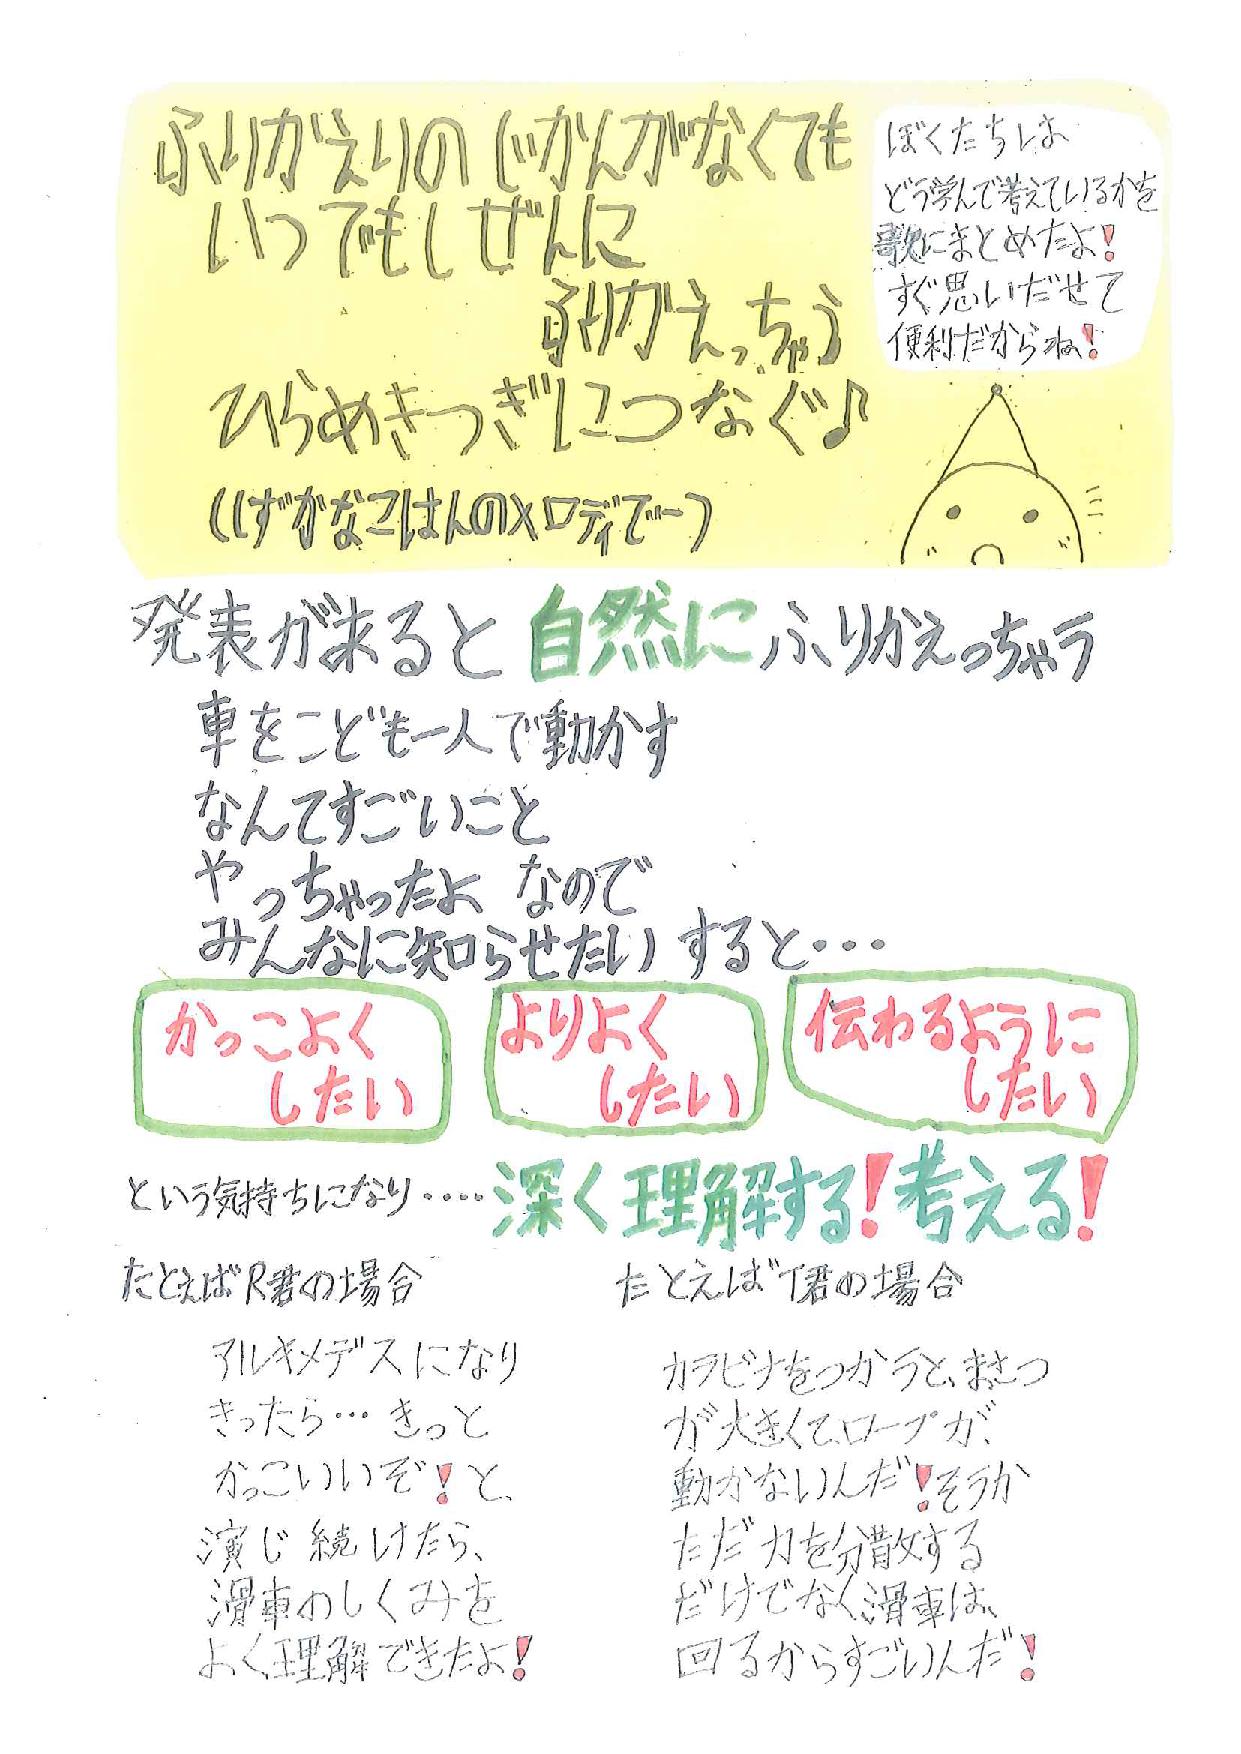 ふりかえりのじかんがなくても
いつでもしぜんに
ふりかえっちゃう
ひらめきつぎにつなぐ♪
(しずかなこはんのメロディでー)
ぼくたちは
どう学んで考えているかを
歌にまとめたよ!
すぐ思いだせて
便利だからね!
発表が来ると自然にふりかえっちゃう
車をこども一人で動かす
なんてすごいこと
やっちゃったよ なので
みんなに知らせたい すると・・・
かっこよく
したい
よりよく
したい
伝わるように
したい
という気持ちになり・・・・深く理解する!考える!
たとえばR君の場合
アルキメデスになり
きったら…きっと
かっこいいぞ!と、
演じ続けたら、
滑車のしくみを
よく理解できたよ!
たとえばT君の場合
カラビナをつかうと、まさつ
が大きくて、ロープが、
動かないんだ!そうか
ただ力を分散する
だけでなく、滑車は、
回るからすごいんだ!